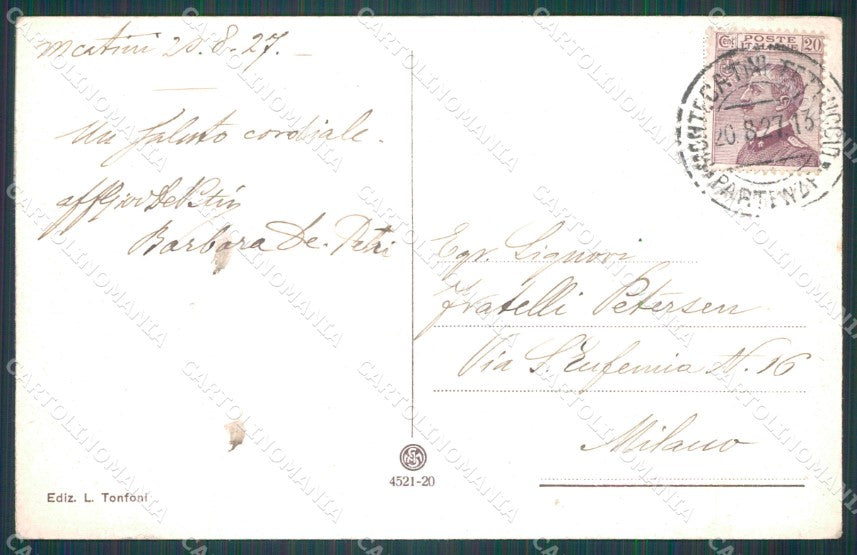 Mcatini 20.8.27.-
Un saluto cordiale.
Barbara De-Petri
Egr. Signori
Fratelli Petersen
Via S. Eufemia N. 16
Milano
POSTE
ITALIANE
20
MONTECATINI PETTINECCIO
20.8.27.13
PARTENZA
4521-20
Ediz. L. Tonfoni
CARTOLINOMANIA